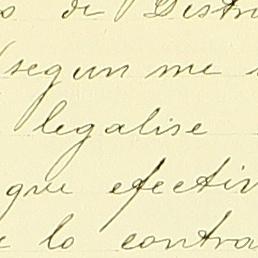 s de Distri
(segun me
legalise
que efectiv
e lo contra